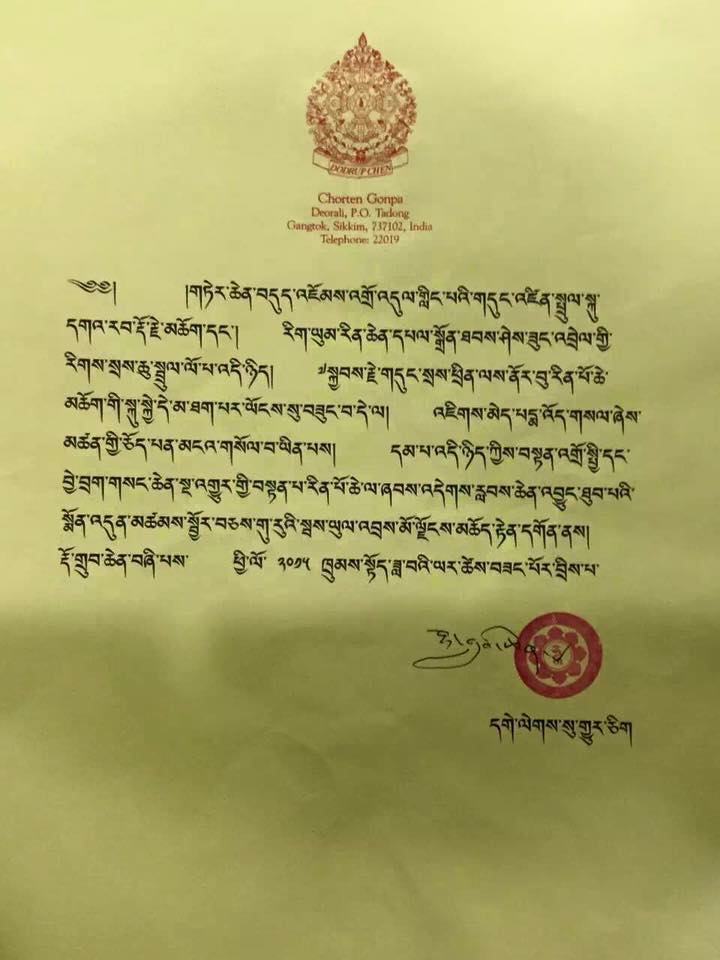 DODRUP CHEN
Chorten Gonpa
Deorali, P.O. Tadong
Gangtok, Sikkim, 737102, India
Telephone: 22019
༄༅། །གཏེར་ཆེན་བདུད་འཇོམས་འགྲོ་འདུལ་གླིང་པའི་གདུང་འཛིན་སྤྲུལ་སྐུ་
དགའ་རབ་རྡོ་རྗེ་མཆོག་དང་། རིག་ཡུམ་རིན་ཆེན་དཔལ་སྒྲོན་ཐབས་ཤེས་ཟུང་འབྲེལ་གྱི་
རིགས་སྲས་ཆུ་སྦྲུལ་ལོ་པ་འདི་ཉིད། ༧སྐྱབས་རྗེ་གདུང་སྲས་ཕྲིན་ལས་ནོར་བུ་རིན་པོ་ཆེ་
མཆོག་གི་སྐུ་སྐྱེ་དེ་མ་ཐག་པར་ཡོངས་སུ་བཟུང་བ་དེ་ལ། འཇིགས་མེད་པདྨ་འོད་གསལ་ཞེས་
མཚན་གྱི་ཅོད་པན་མངའ་གསོལ་བ་ཡིན་པས། དམ་པ་འདི་ཉིད་ཀྱིས་བསྟན་འགྲོ་སྤྱི་དང་
བྱེ་བྲག་གསང་ཆེན་སྔ་འགྱུར་གྱི་བསྟན་པ་རིན་པོ་ཆེ་ལ་ཞབས་འདེགས་རླབས་ཆེན་འབྱུང་ཐུབ་པའི་
སྨོན་འདུན་མཚམས་སྦྱོར་བཅས་གུ་རུའི་སྦས་ཡུལ་འབྲས་མོ་ལྗོངས་མཆོད་རྟེན་དགོན་ནས།
རྡོ་གྲུབ་ཆེན་བཞི་པས་ ཕྱི་ལོ་ ༢༠༡༥ ཁྲུམས་སྟོད་ཟླ་བའི་ཡར་ཚེས་བཟང་པོར་བྲིས་པ་
དགེ་ལེགས་སུ་གྱུར་ཅིག